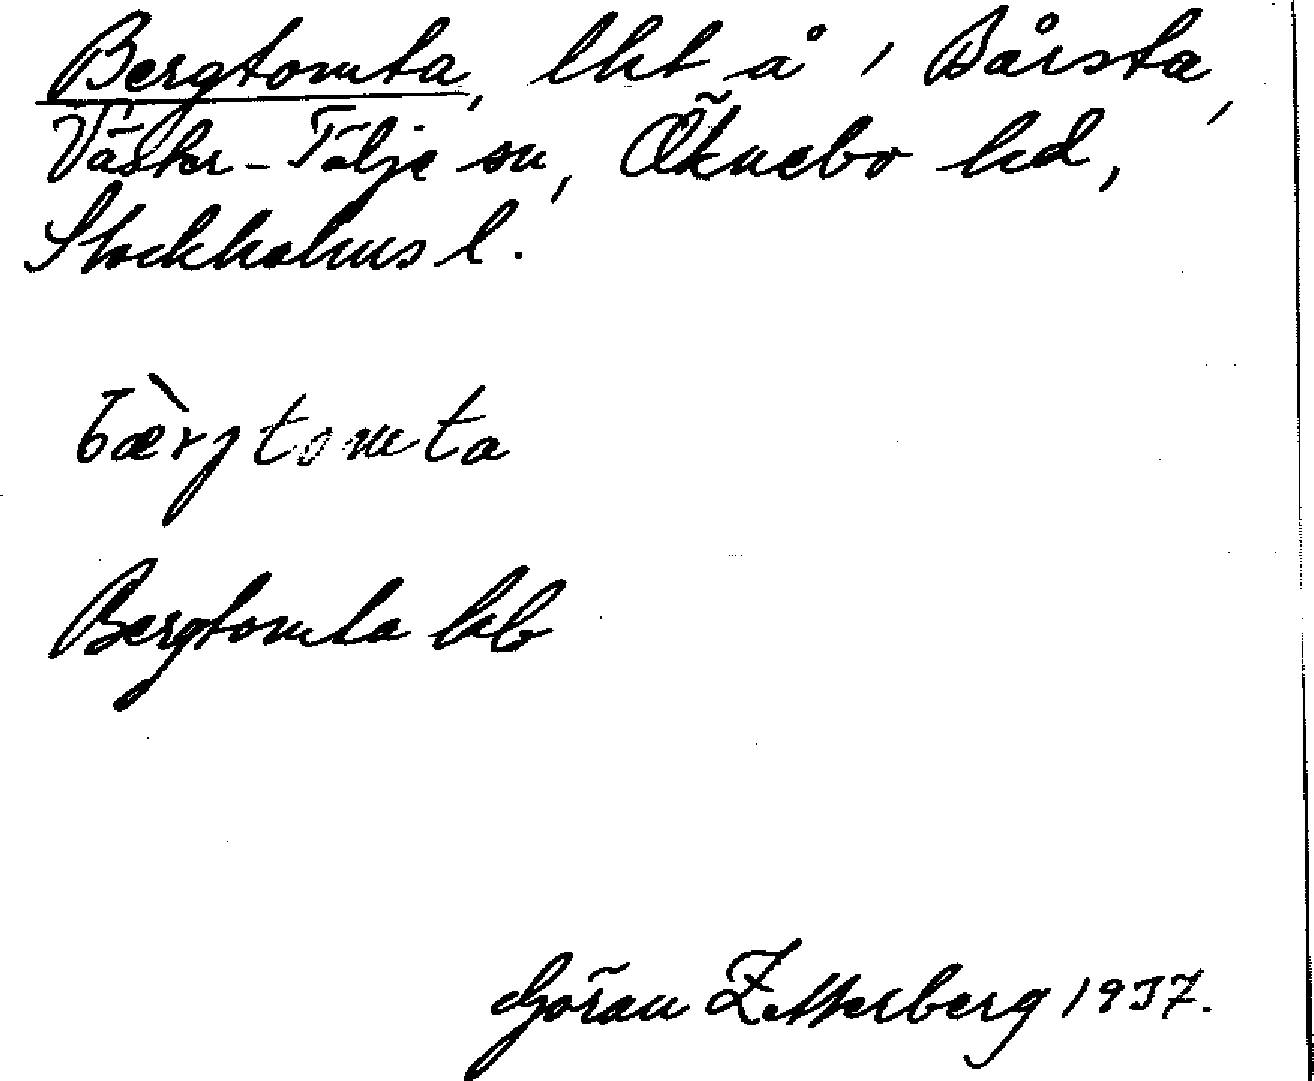 Bergtomta, lht å i Bårsta,
Väster-Tälje sn, Öknebo hd,
Stockholms l.
bæ̀rjtomta
Bergtomta hb
Göran Zetterberg 1937.